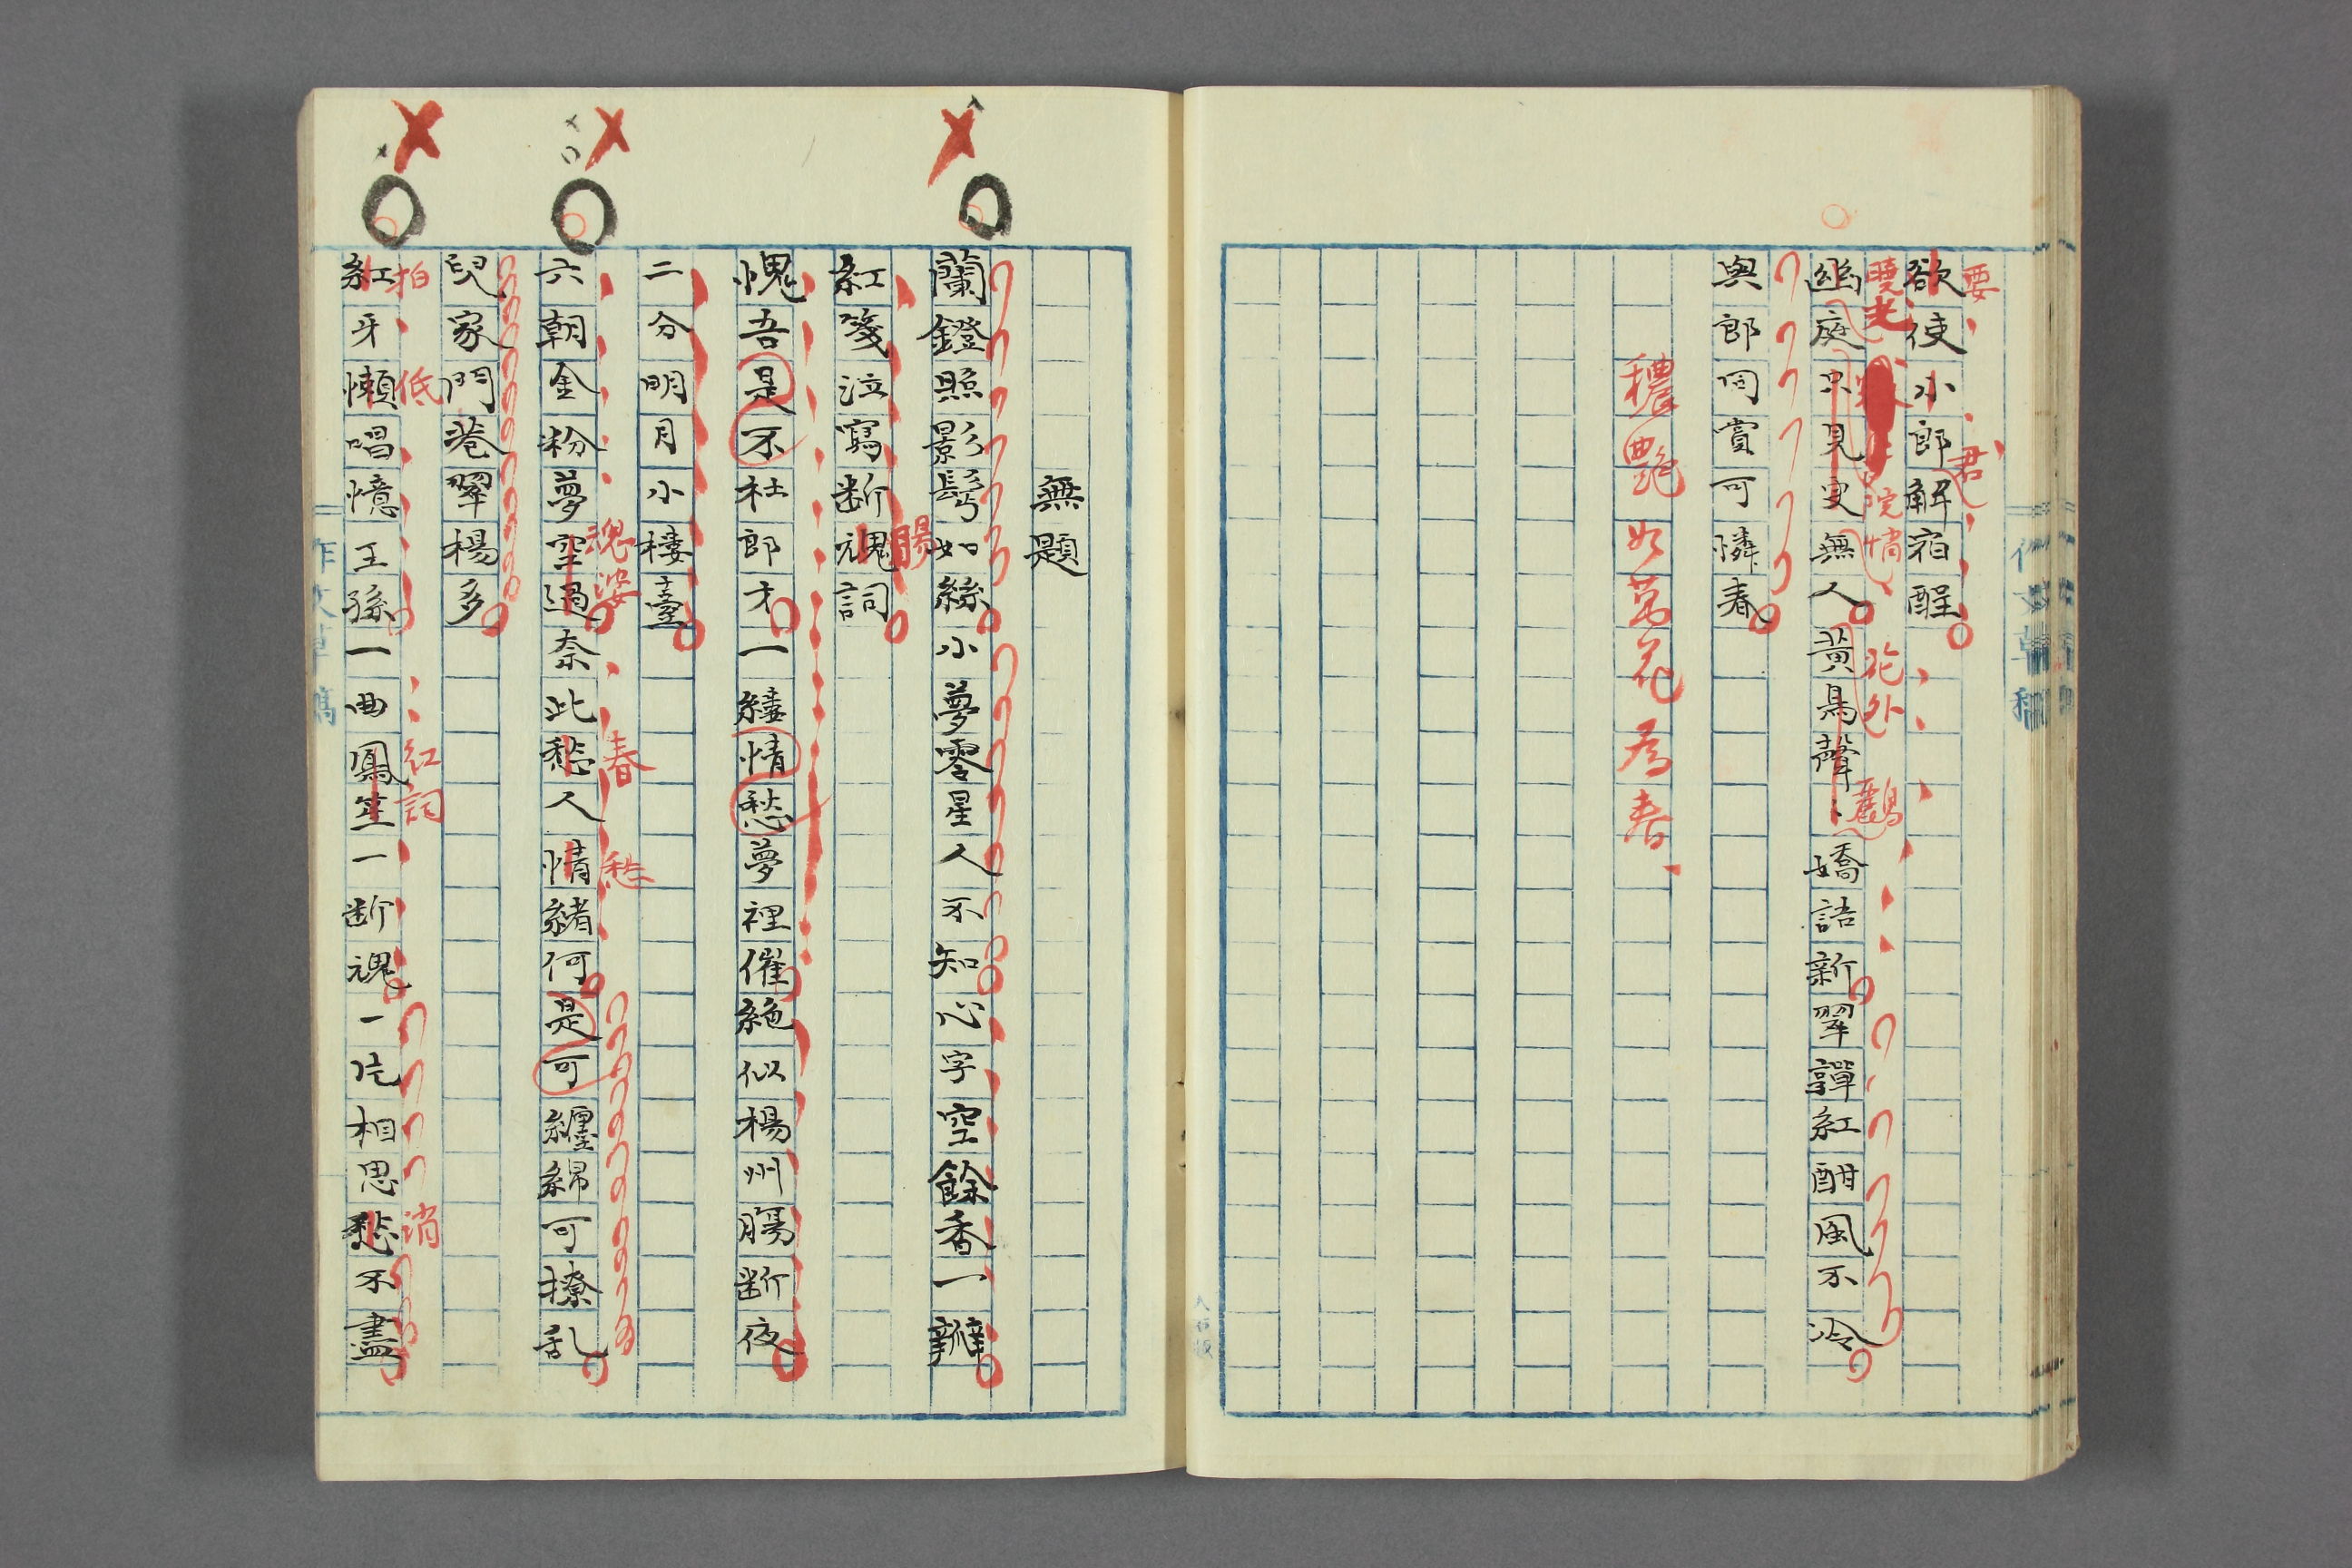 要
欲使小郎解宿酲
君
曉光 院悄 花外 鸝
幽庭只見更無人黃鳥聲〻嬌語新翠嚲紅酣風不冷
與郎同賞可憐春
穠艷如萬花為春
作文草稿
無題
蘭鐙照影鬢如絲小夢零星人不知心字空餘香一瓣
腸
紅箋泣寫斷魂詞
愧吾是不杜郎才一縷情愁夢裡催絕似楊州腸斷夜
二分明月小樓臺
魂婆 春 愁
六朝金粉夢空過奈此愁人情緒何是可纏綿可撩乱
兒家門巷翠楊多
拍 低 紅詞 消
紅牙懶唱憶王孫一曲鳳笙一斷魂一片相思愁不盡
作文草稿